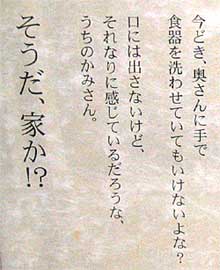 今どき、奥さんに手で
食器を洗わせていてもいけないよな?
口には出さないけど、
それなりに感じているだろうな、
うちのかみさん。
そうだ、家か!?